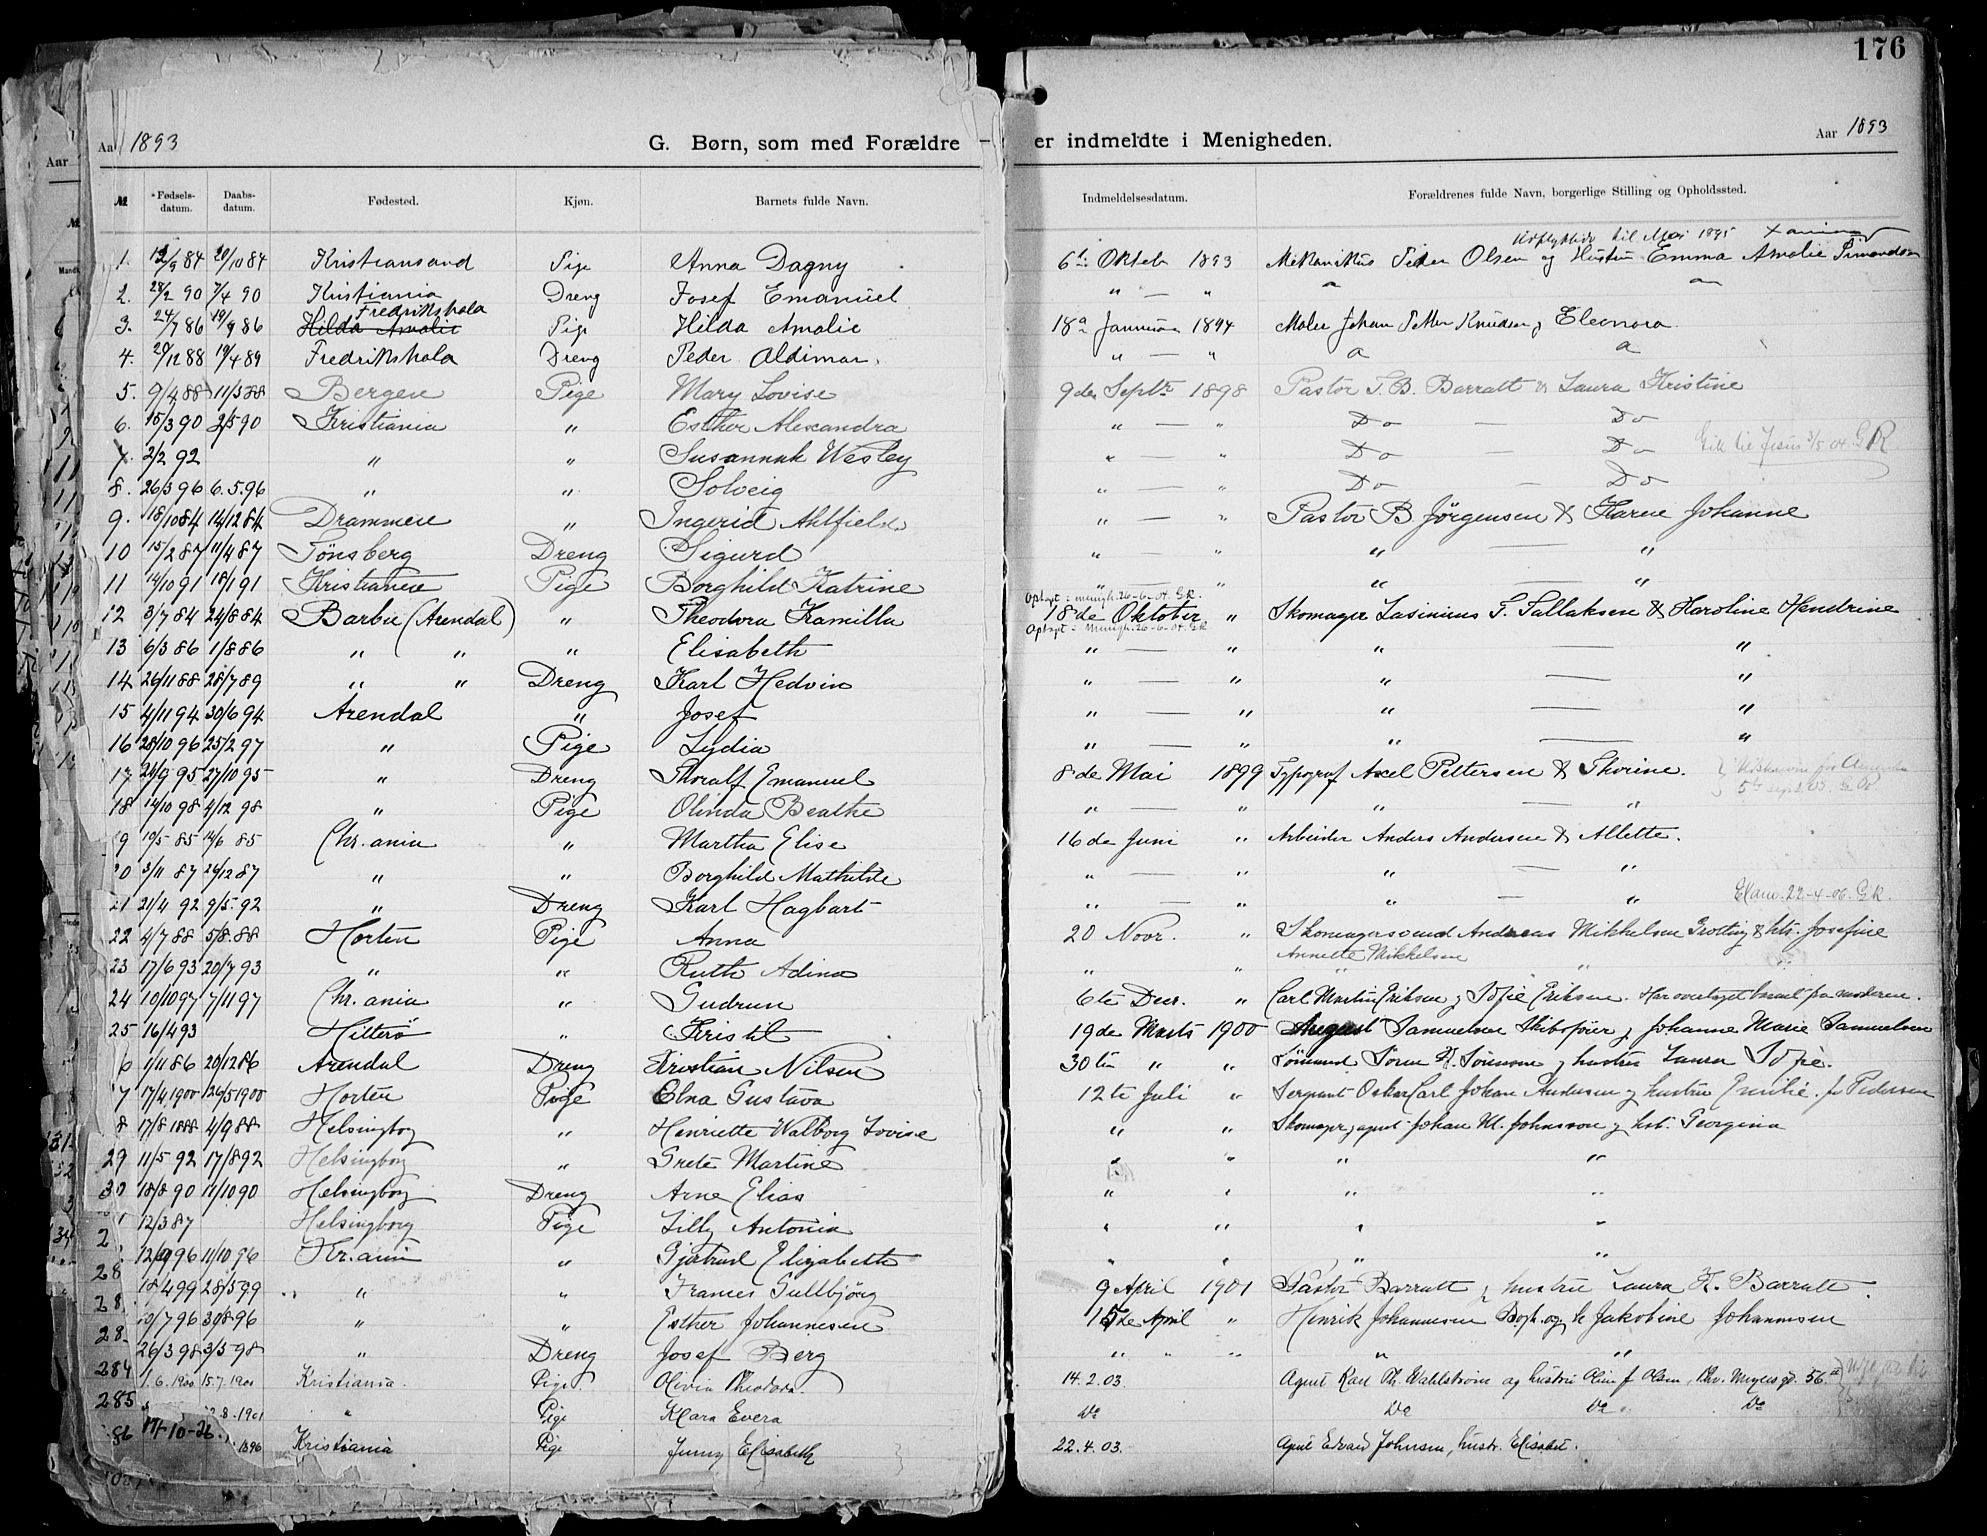 176
Aar 1893 G. Børn, som med Forældre er indmeldte i Menigheden. Aar 1893
№ Fødsels-datum. Daabs-datum. Fødested. Kjøn. Barnets fulde Navn. Indmeldelsesdatum. Forældrenes fulde Navn, borgerlige Stilling og Opholdssted.
til Mai 1895
1. 12/9 84 20/10 84 Kristiansand Pige Anna Dagny 6te Oktob 1893 Mekanikus Peder Olsen og Hustru Emma Amalie
2. 28/2 90 7/4 90 Kristiania Dreng Josef Emanuel " — " " "
Fredrikshala
3. 24/7 86 19/9 86 Hilda Amalie Pige Hilda Amalie 18de Januar 1894 Maler Johan Petter Knudsen, Eleonora
4. 20/12 88 19/4 89 Fredrikshala Dreng Peder Aldimar. " — " " "
5. 9/4 88 11/5 88 Bergen Pige Mary Lovise 9de Septr 1898 Pastor T. B. Barratt & Laura Kristine
6. 15/3 90 2/5 90 Kristiania " Esther Alexandra " — " Do — Do
7. 2/2 92 " " Susannah Wesley " — " Do — Do Gik til Jesus 3/5 04. G R
8. 26/3 96 6.5.96 " " Solveig " — " Do — Do
9. 18/10 84 14/12 84 Drammen " Ingerid Ahlfield " — " Pastor B. Jörgensen & Karen Johanne
10 15/2 87 11/4 87 Tönsberg Dreng Sigurd " — " " — "
11 14/10 91 18/1 91 Kristiania Pige Borghild Katrine " — " " — "
Optagt i menigh. 26-6-04. G.R.
12 3/7 84 24/8 84 Barbu (Arendal) " Theodora Kamilla 18de Oktober " Skomager Lasinius T. Tallaksen & Karoline Hendrine
Optagt i Menigh. 26-6-04. G.R.
13 6/3 86 1/8 86 " " " Elisabeth " — " " — "
14 26/11 88 28/7 89 " " Dreng Karl Hedvin " — " " — "
15 4/11 94 30/6 94 Arendal " Josef " — " " — "
16 28/10 96 25/2 97 " Pige Lydia " — " " — "
17 24/9 95 27/10 95 " Dreng Thoralf Emanuel 8de Mai 1899 Typograf Axel Pettersen & Thorine.
18 14/10 98 4/12 98 " Pige Olinda Beathe " — " " — "
19 19/5 85 14/6 85 Chr.ania " Martha Elise 16de Juni " Arbeider Anders Andersen & Allette.
20 3/11 87 26/12 87 " " Borghild Mathilde " — " " — "
21 21/4 92 9/5 92 " Dreng Karl Hagbart " — " " — " Exam. 22-4-06. G.R.
22 4/7 88 5/8 88 Horten Pige Anna 20 Novr. " Skomagersvend Andreas Mikkelsen Grotting & hts. Josefine
Annette Mikkelsen
23 17/6 93 20/7 93 " " Ruth Adina " " " "
24 10/10 97 7/11 97 Chr.ania " Gudrun 6te Decr. " Carl Martin Eriksen og Sofie Eriksen. Har overtaget barnet fra moderen.
25 16/4 93 Hitterö " Kristil 19de Marts 1900 August Samuelsen Skibsfører og Johanne Marie Samuelsen
6 1/11 86 20/12 86 Arendal Dreng Kristian Nilsen 30te " " Sömand Sören H. Sörensen og hustru Laura Sofie.
7 17/4 1900 26/5 1900 Horten Pige Elna Gustava 12te Juli " Sergeant Oskar Carl Johan Andersen og hustru Emilie. f. Pedersen
8 17/8 1888 4/9 88 Helsingborg " Henriette Walborg Lovise " " Skomager, agent Johan M. Johnsson og hst. Georgina
29 11/5 92 17/8 92 Helsingborg " Grete Martine " " "
30 18/8 90 11/10 90 Helsingborg Dreng Arne Elias " " " "
12/3 87 Helsingborg Pige Lilly Antonia " " " "
2 12/9 96 11/10 96 Kr.ania " Gjertrud Elizabeth " " " "
28 18/4 99 28/5 99 " " Frances Gullbjörg 9 April 1901 Pastor Barratt og hustru Laura K. Barratt.
28 10/7 96 30/8 96 " " Esther Johannesen 15de April " Henrik Johannesen Bogh. og h. Jakobine Johannesen
28 26/3 98 3/5 98 " Dreng Josef Berg " " " " "
284 1.6.1900 15.7.1900 Kristiania. Pige. Olivia Theodora. 14.2.03. Agent Karl Th. Wahlström og hustru Oline f. Olsen, Thv. Meyersgd. 56.
285 8.1901 " Pige Klara Evera Do Do Do Do
86 17/-10-26 1896 Kristiania Pige Jenny Elisabeth 22.4.03. Agent Edvard Johnsen, hustr. Elisabet.